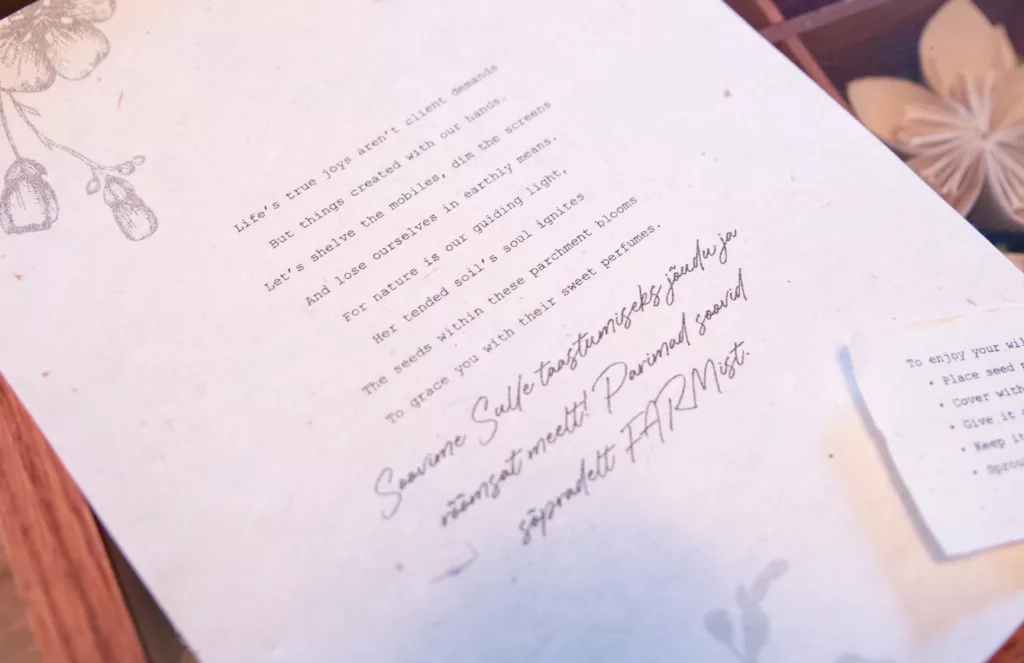 Life's true joys aren't client demands
But things created with our hands.
Let's shelve the mobiles, dim the screens
And lose ourselves in earthly means.
For nature is our guiding light,
Her tended soil's soul ignites
The seeds within these parchment blooms
To grace you with their sweet perfumes.
Soovime Sulle taastumiseks jõudu ja
rõõmsat meelt! Parimad soovid
sõpradelt FARMist.
To enjoy your
• Place seed
• Cover with
• Give it
• Keep it